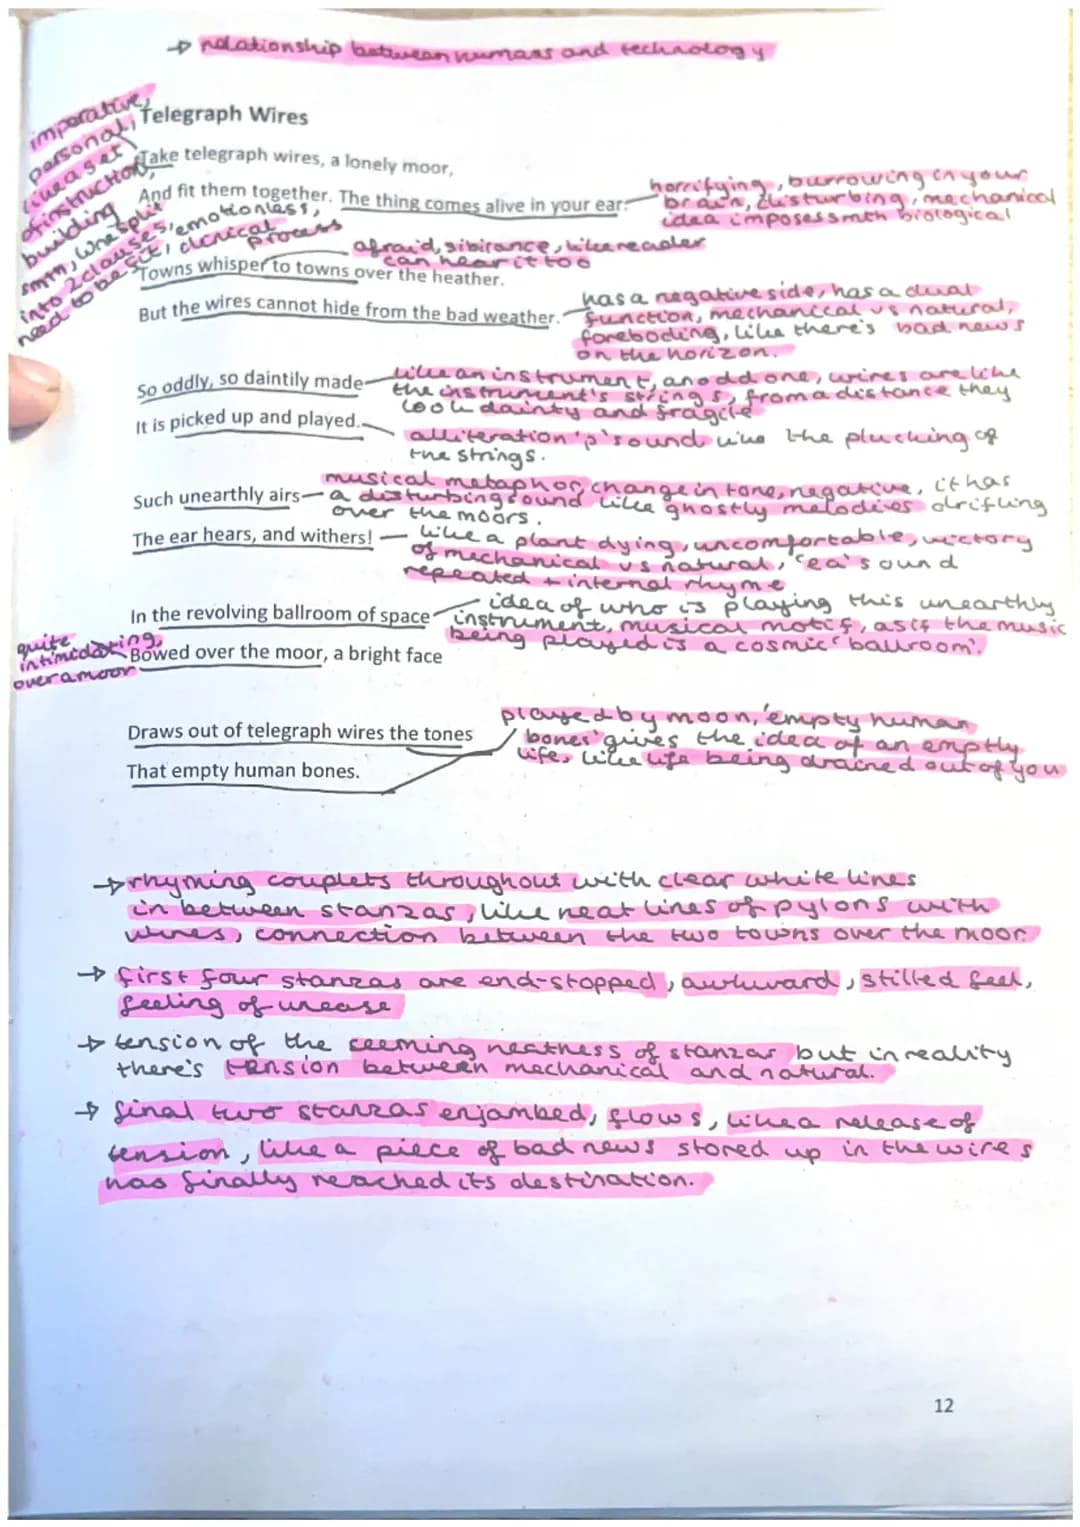 → relationship between humans and technology
Telegraph Wires
imperative,
personal,
like a set
of instruction,
building
smth, line split
into 2 clauses, emotionless,
need to be sit, clerical
process
Take telegraph wires, a lonely moor,
And fit them together. The thing comes alive in your ear.
horrifying, burrowing in your
brain, disturbing, mechanical
idea imposes smth biological
afraid, sibirance, like reader
can hear it too
Towns whisper to towns over the heather.
But the wires cannot hide from the bad weather.
has a negative side, has a dual
function, mechanical vs natural,
foreboding, like there's bad news
on the horizon.
So oddly, so daintily made
like an instrument, an odd one, wires are like
the instrument's strings, from a distance they
look dainty and fragile
It is picked up and played.
alliteration 'p' sound like the plucking of
the strings.
Such unearthly airs
musical metaphor, change in tone, negative, it has
a disturbing sound like ghostly melodies drifting
over the moors.
The ear hears, and withers!
like a plant dying, uncomfortable, victory
of mechanical vs natural, 'ea' sound
repeated + internal rhyme
In the revolving ballroom of space
idea of who is playing this unearthly
instrument, musical motif, as if the music
being played is a cosmic 'ballroom'.
quite
intimidating,
over a moor
Bowed over the moor, a bright face
Draws out of telegraph wires the tones
That empty human bones.
played by moon, 'empty human
bones' gives the idea of an emptly
life, like life being drained out of you
→ rhyming couplets throughout with clear white lines
in between stanzas, like neat lines of pylons with
wires, connection between the two towns over the moor.
→ first four stanzas are end-stopped, awkward, stilted feel,
feeling of unease
→ tension of the seeming neatness of stanzas but in reality
there's tension between mechanical and natural.
→ final two stanzas enjambed, flows, like a release of
tension, like a piece of bad news stored up in the wires
has finally reached its destination.
12